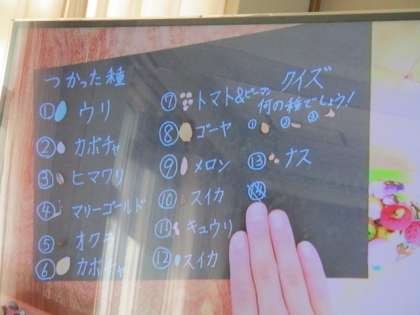 つかった種
① ウリ
② カボチャ
③ ヒマワリ
④ マリーゴールド
⑤ オクラ
⑥ カボチャ
⑦ トマト&ピーマン
⑧ ゴーヤ
⑨ メロン
⑩ スイカ
⑪ キュウリ
⑫ スイカ
クイズ
何の種でしょう!
① ② ③
⑬ ナス